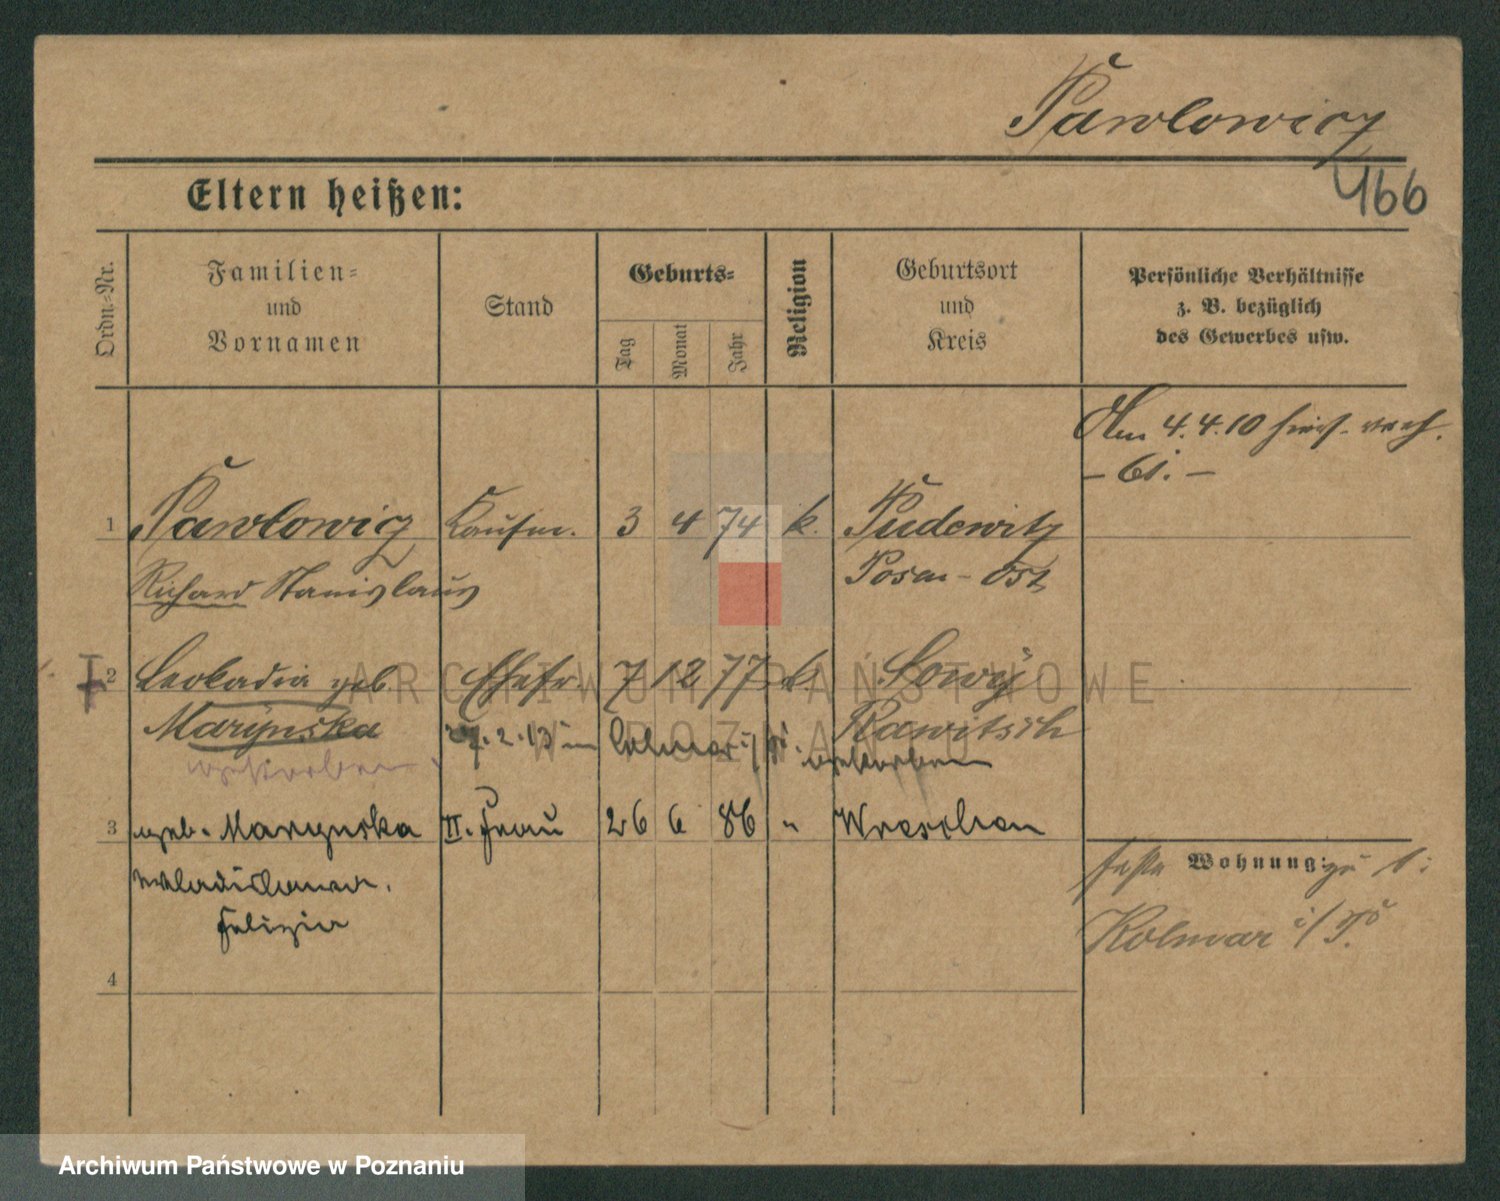 Pawlowicz
466
Eltern heißen:
Ordn.-Nr.
Familien-
und
Vornamen
Stand
Geburts-
Tag
Monat
Jahr
Religion
Geburtsort
und
Kreis
Persönliche Verhältnisse
z. B. bezüglich
des Gewerbes usw.
Am 4. 4. 10
- 61. -
1 Pawlowicz Kaufm. 3 4 74 k. Pudewitz
Richard Stanislaus Posen-Ost
2 Leokadia geb. Ehefr. 7 12 77 k.
Marynska 27. 2. 13 in Colmar i/P. gestorben Rawitsch
gestorben
3 geb. Marynska II. Frau 26 6 86 " Wreschen
Wladislawa
Felizia
feste Wohnung: zu
Kolmar i/P.
4
ARCHIWUM PAŃSTWOWE
W POZNANIU
Archiwum Państwowe w Poznaniu